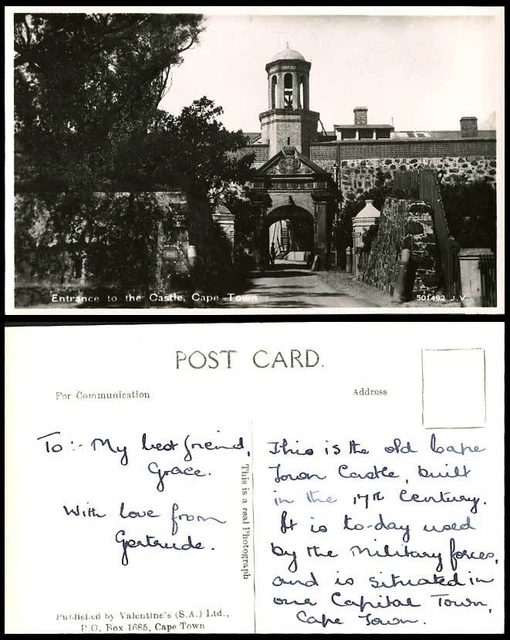 Entrance to the Castle, Cape Town
S01492 J.V.
POST CARD.
For Communication
Address
To:- My best friend,
Grace.
With love from
Gertrude.
This is a real Photograph
This is the old Cape
Town Castle, built
in the 17th Century.
It is to-day used
by the Military forces,
and is situated in
one Capital Town,
Cape Town.
Published by Valentine's (S.A.) Ltd.,
P.O. Box 1685, Cape Town